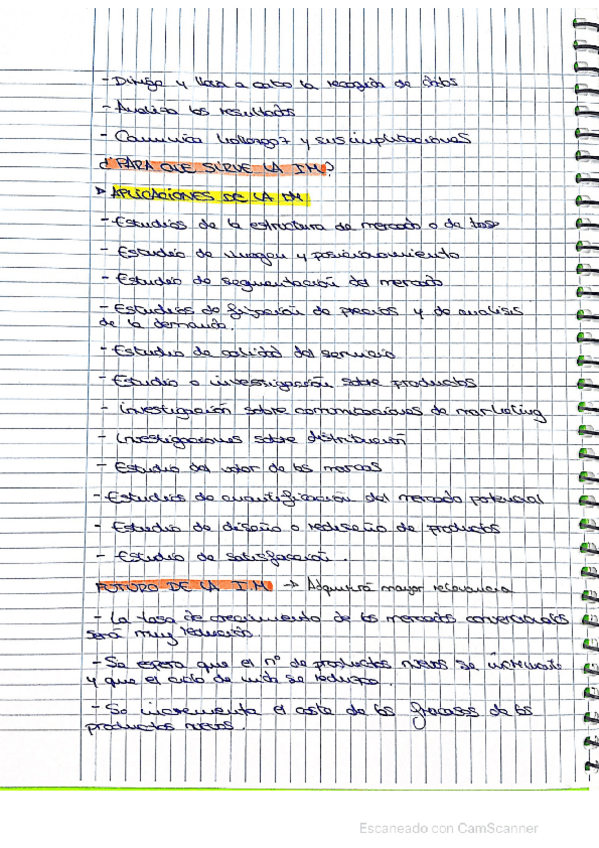 - Dirige y lleva a cabo la recogida de datos
- Analiza los resultados
- Comunica hallazgos y sus implicaciones
¿PARA QUE SIRVE LA IM?
APLICACIONES DE LA IM
- Estudios de la estructura de mercado o de
- Estudio de imagen y posicionamiento
- Estudio de segmentación del mercado
- Estudios de fijación de precios y de analisis
de la demanda.
- Estudio de calidad del servicio
- Estudio o investigación sobre productos
- Investigación sobre comunicaciones de marketing
- Investigaciones sobre distribución
- Estudio del valor de las marcas
- Estudios de cuantificación del mercado potencial
- Estudio de diseño o rediseño de productos
- Estudio de satisfacción.
FUTURO DE LA IM → Adquirirá mayor relevancia
- La tasa de crecimiento de los mercados
será muy reducido
- Se espera que el nº de productos nuevos se incremente
y que el ciclo de vida se reduzca.
- Se incrementa el coste de los fracasos de los
productos nuevos.
Escaneado con CamScanner